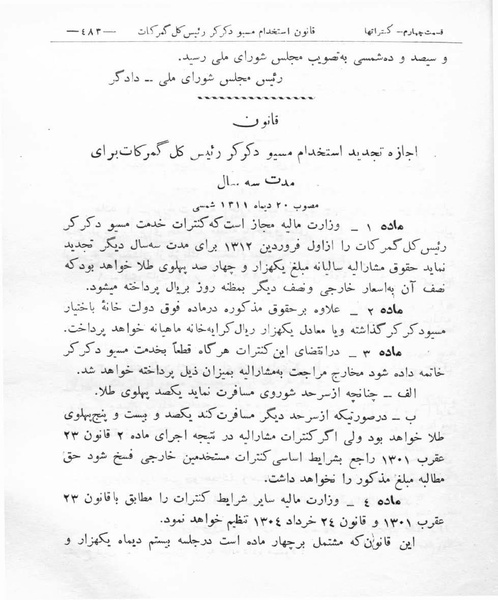 قسمت چهارم - کنتراتها قانون استخدام مسیو دکرکر رئیس کل گمرکات -۴۸۳-
و سیصد و ده شمسی به تصویب مجلس شورای ملی رسید.
رئیس مجلس شورای ملی - دادگر
قانون
اجازه تجدید استخدام مسیو دکرکر رئیس کل گمرکات برای
مدت سه سال
مصوب ۲۰ دیماه ۱۳۱۱ شمسی
ماده ۱ - وزارت مالیه مجاز است که کنترات خدمت مسیو دکرکر
رئیس کل گمرکات را از اول فروردین ۱۳۱۲ برای مدت سه سال دیگر تجدید
نماید حقوق مشارالیه سالیانه مبلغ یکهزار و چهار صد پهلوی طلا خواهد بود که
نصف آن به اسعار خارجی ونصف دیگر بمظنه روز بریال پرداخته میشود.
ماده ۲ - علاوه بر حقوق مذکوره در ماده فوق دولت خانهٔ باختیار
مسیو دکرکر گذاشته ویا معادل یکهزار ریال کرایه خانه ماهیانه خواهد پرداخت.
ماده ۳ - در انقضای این کنترات هرگاه قطعاً بخدمت مسیو دکرکر
خاتمه داده شود مخارج مراجعت به مشارالیه بمیزان ذیل پرداخته خواهد شد.
الف - چنانچه از سرحد شوروی مسافرت نماید یکصد پهلوی طلا.
ب - در صورتیکه از سرحد دیگر مسافرت کند یکصد و بیست و پنج پهلوی
طلا خواهد بود ولی اگر کنترات مشارالیه در نتیجه اجرای ماده ۲ قانون ۲۳
عقرب ۱۳۰۱ راجع بشرایط اساسی کنترات مستخدمین خارجی فسخ شود حق
مطالبه مبلغ مذکور را نخواهد داشت.
ماده ۴ - وزارت مالیه سایر شرایط کنترات را مطابق با قانون ۲۳
عقرب ۱۳۰۱ و قانون ۲۴ خرداد ۱۳۰۴ تنظیم خواهد نمود.
این قانون که مشتمل بر چهار ماده است در جلسه بیستم دیماه یکهزار و